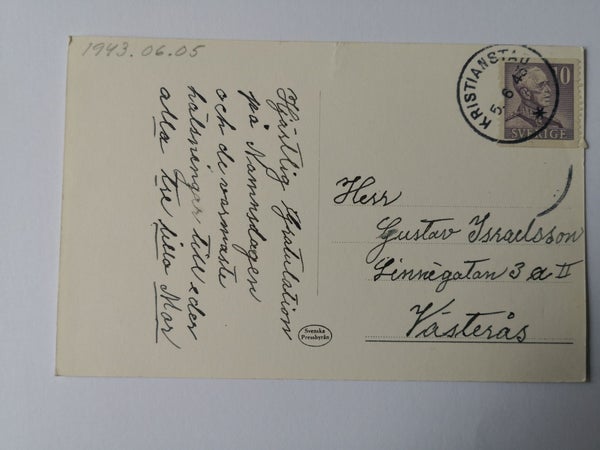 1943.06.05
Hjärtlig Gratulation
på Namnsdagen
och de varmaste
hälsningar till eder
alla tre Mor
Svenska
Pressbyrån
KRISTIANSTAD
5.6.43
10
SVERIGE
Herr
Gustav Israelsson
Linnégatan 3 a II
Västerås